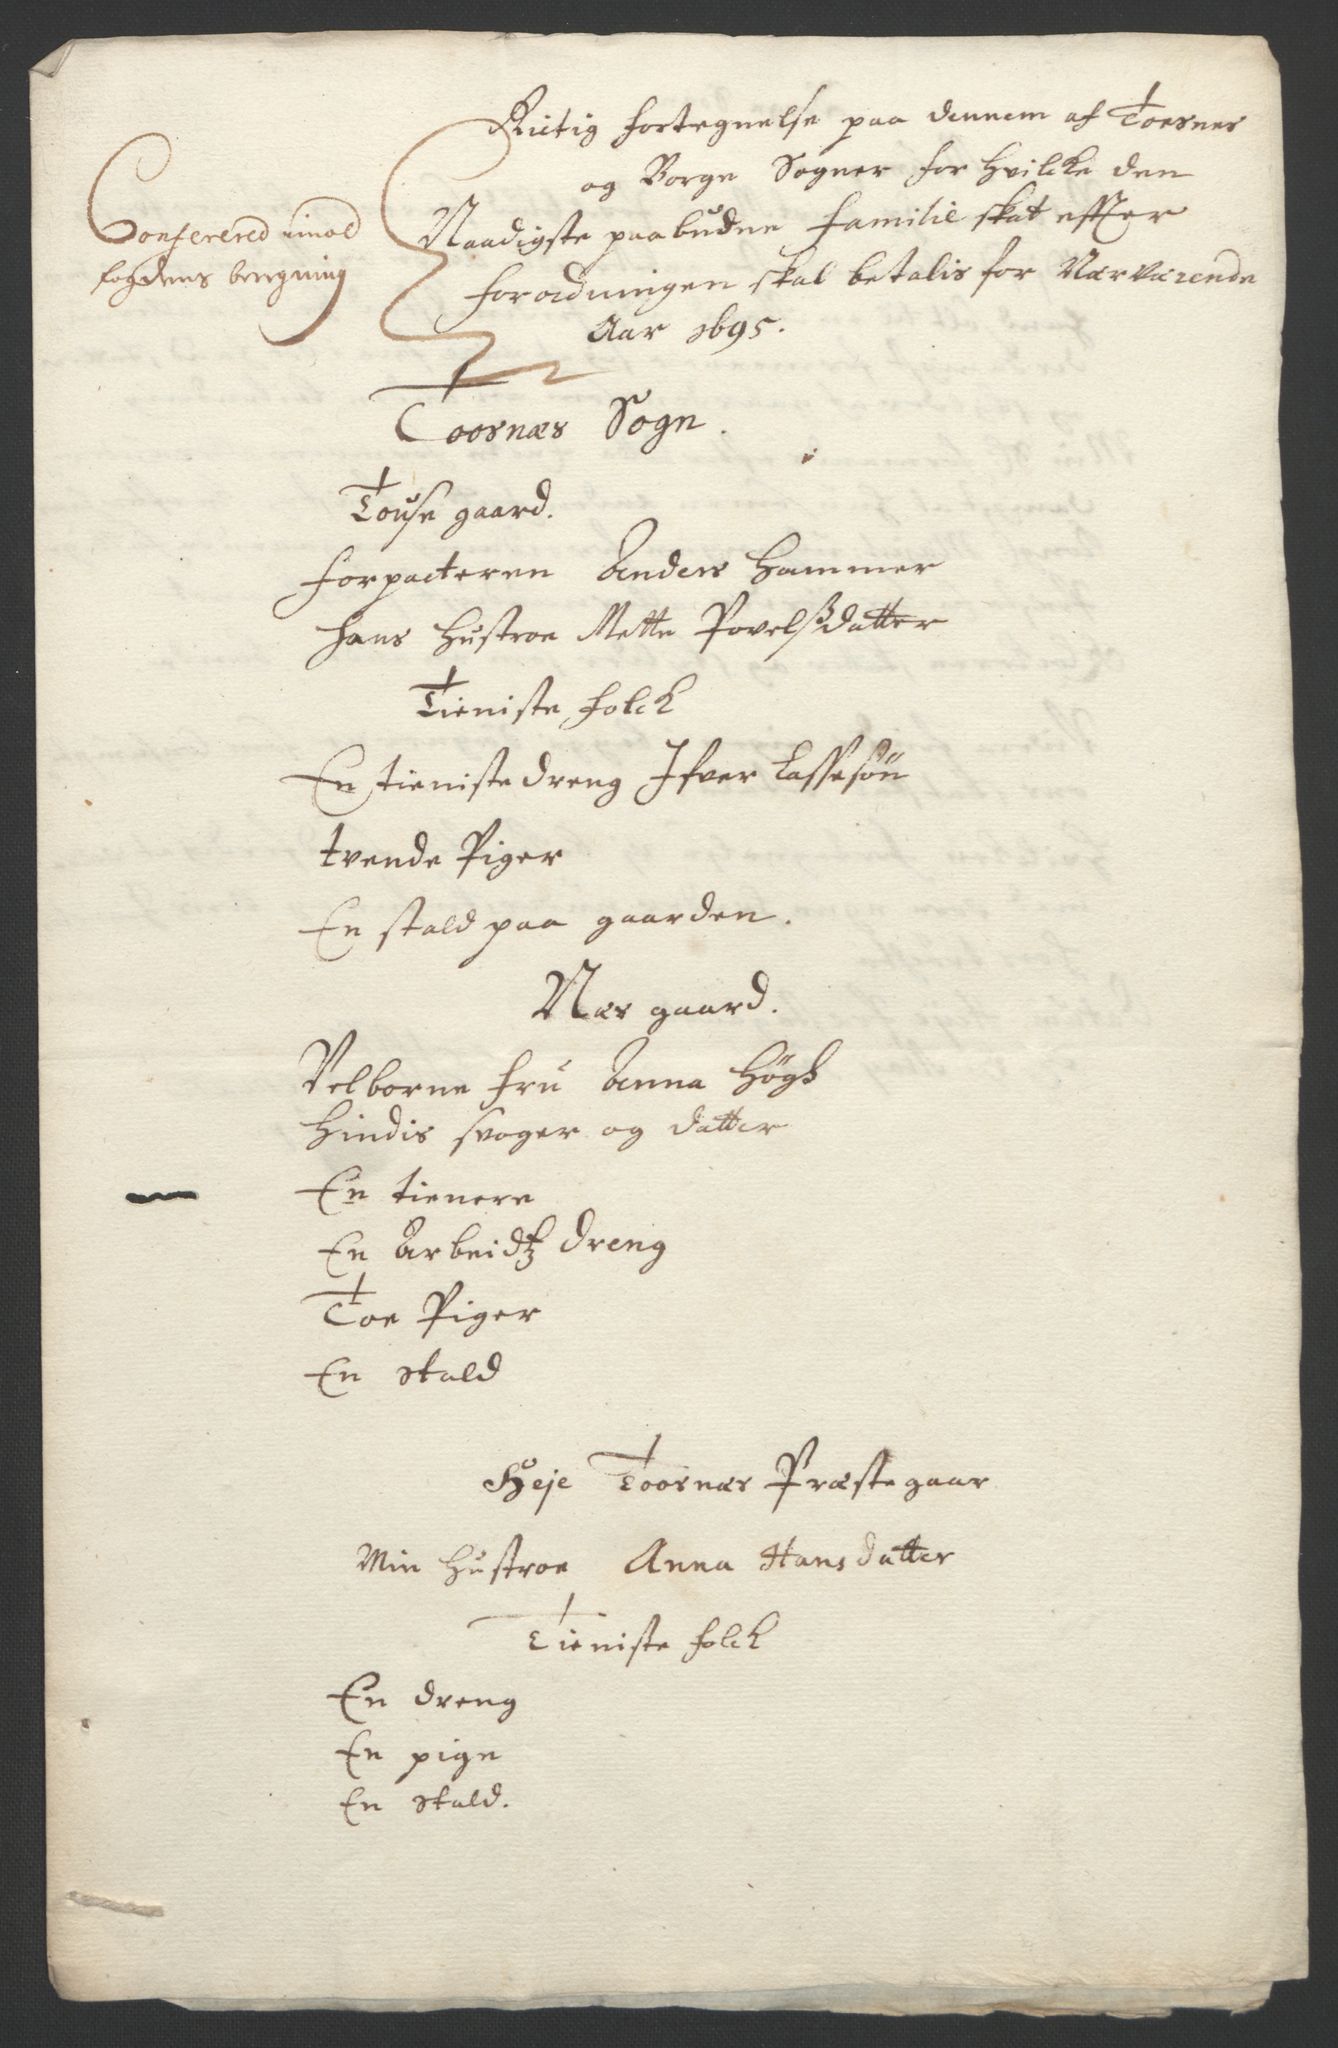 Rictig fortegnelse paa dennem af Toesnes
og Borge Sogner for hvilcke den
Naadigste paabudne familie skat effter
forordningen skal betalis for Nærværende
Aar 1695.
Conferered imod
fogdens beregning
Toosnæs Sogn.
Touse gaard.
forpacteren Anders Hammer
hans Hustroe Mette Povelsdatter
Tieniste folck
En tieniste dreng Ifver Lassesøn
tvende Piger
En stald paa gaarden.
Næs gaard.
Velborne fru Anna Høgh
Hindis svoger og datter
En tienere
En Arbeidtz dreng
Toe Piger
En stald
Heje Toosnæs Præstegaar
Min Hustroe Anna Hansdatter
Tieniste folck
En dreng
En pige
En stald.